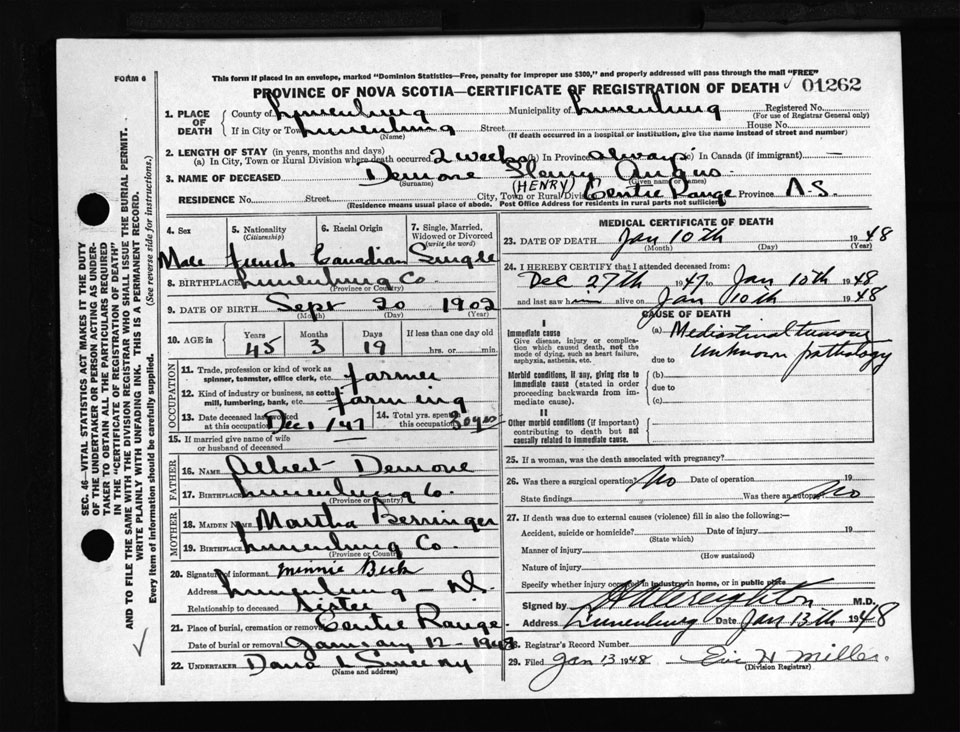 FORM 6
This form if placed in an envelope, marked "Dominion Statistics—Free, penalty for improper use $300," and properly addressed will pass through the mail "FREE"
PROVINCE OF NOVA SCOTIA—CERTIFICATE OF REGISTRATION OF DEATH 01262
1. PLACE OF DEATH
County of Lunenburg Municipality of Lunenburg Registered No.
(For use of Registrar General only)
If in City or Town Lunenburg Street House No.
(Name) (If death occurred in a hospital or institution, give the name instead of street and number)
2. LENGTH OF STAY (in years, months and days)
(a) In City, Town or Rural Division where death occurred 2 weeks (b) In Province always (c) In Canada (if immigrant) —
3. NAME OF DECEASED Demone Henry Angus
(Surname) (Given name or names)
(HENRY)
RESIDENCE No. Street City, Town or Rural Division Centre Range Province N.S.
(Residence means usual place of abode. Post Office Address for residents in rural parts not sufficient)
4. Sex 5. Nationality (Citizenship) 6. Racial Origin 7. Single, Married, Widowed or Divorced (write the word)
Male French Canadian Single
8. BIRTHPLACE Lunenburg Co.
(Province or Country)
9. DATE OF BIRTH Sept 20 1902
(Month) (Day) (Year)
10. AGE in Years Months Days If less than one day old
45 3 19 hrs. or min.
OCCUPATION
11. Trade, profession or kind of work as spinner, teamster, office clerk, etc. farmer
12. Kind of industry or business, as cotton mill, lumbering, bank, etc. farming
13. Date deceased last worked at this occupation Dec 1/47 14. Total yrs. spent in this occupation 30 yrs
15. If married give name of wife or husband of deceased —
FATHER
16. NAME Albert Demone
17. BIRTHPLACE Lunenburg Co.
(Province or Country)
MOTHER
18. MAIDEN NAME Martha Berringer
19. BIRTHPLACE Lunenburg Co.
(Province or Country)
20. Signature of informant Minnie Beck
Address Lunenburg - N.S.
Relationship to deceased Sister
21. Place of burial, cremation or removal Centre Range
Date of burial or removal January 12 - 1948
22. UNDERTAKER
(Name and address)
MEDICAL CERTIFICATE OF DEATH
23. DATE OF DEATH Jan 10th 1948
(Month) (Day) (Year)
24. I HEREBY CERTIFY that I attended deceased from:
Dec 27th 1947 to Jan 10th 1948
and last saw him alive on Jan 10th 1948
CAUSE OF DEATH
I
Immediate cause (a) Mediastinal tumour
Give disease, injury or complication which caused death, not the mode of dying, such as heart failure, asphyxia, asthenia, etc. due to unknown pathology
Morbid conditions, if any, giving rise to immediate cause (stated in order proceeding backwards from immediate cause). (b) due to (c)
II
Other morbid conditions (if important) contributing to death but not causally related to immediate cause.
25. If a woman, was the death associated with pregnancy?
26. Was there a surgical operation? No Date of operation 19
State findings Was there an autopsy? No
27. If death was due to external causes (violence) fill in also the following:—
Accident, suicide or homicide? Date of injury 19
(State which)
Manner of injury
(How sustained)
Nature of injury
Specify whether injury occurred in industry, in home, or in public place
Signed by Creighton M.D.
Address Lunenburg Date Jan 13th 1948
28. Registrar's Record Number
29. Filed Jan 13 1948 H Miller.
(Division Registrar)
SEC. 46—VITAL STATISTICS ACT MAKES IT THE DUTY
OF THE UNDERTAKER OR PERSON ACTING AS UNDER-
TAKER TO OBTAIN ALL THE PARTICULARS REQUIRED
IN THE "CERTIFICATE OF REGISTRATION OF DEATH"
AND TO FILE THE SAME WITH THE DIVISION REGISTRAR WHO SHALL ISSUE THE BURIAL PERMIT.
WRITE PLAINLY WITH UNFADING INK. THIS IS A PERMANENT RECORD.
Every item of information should be carefully supplied. (See reverse side for instructions.)